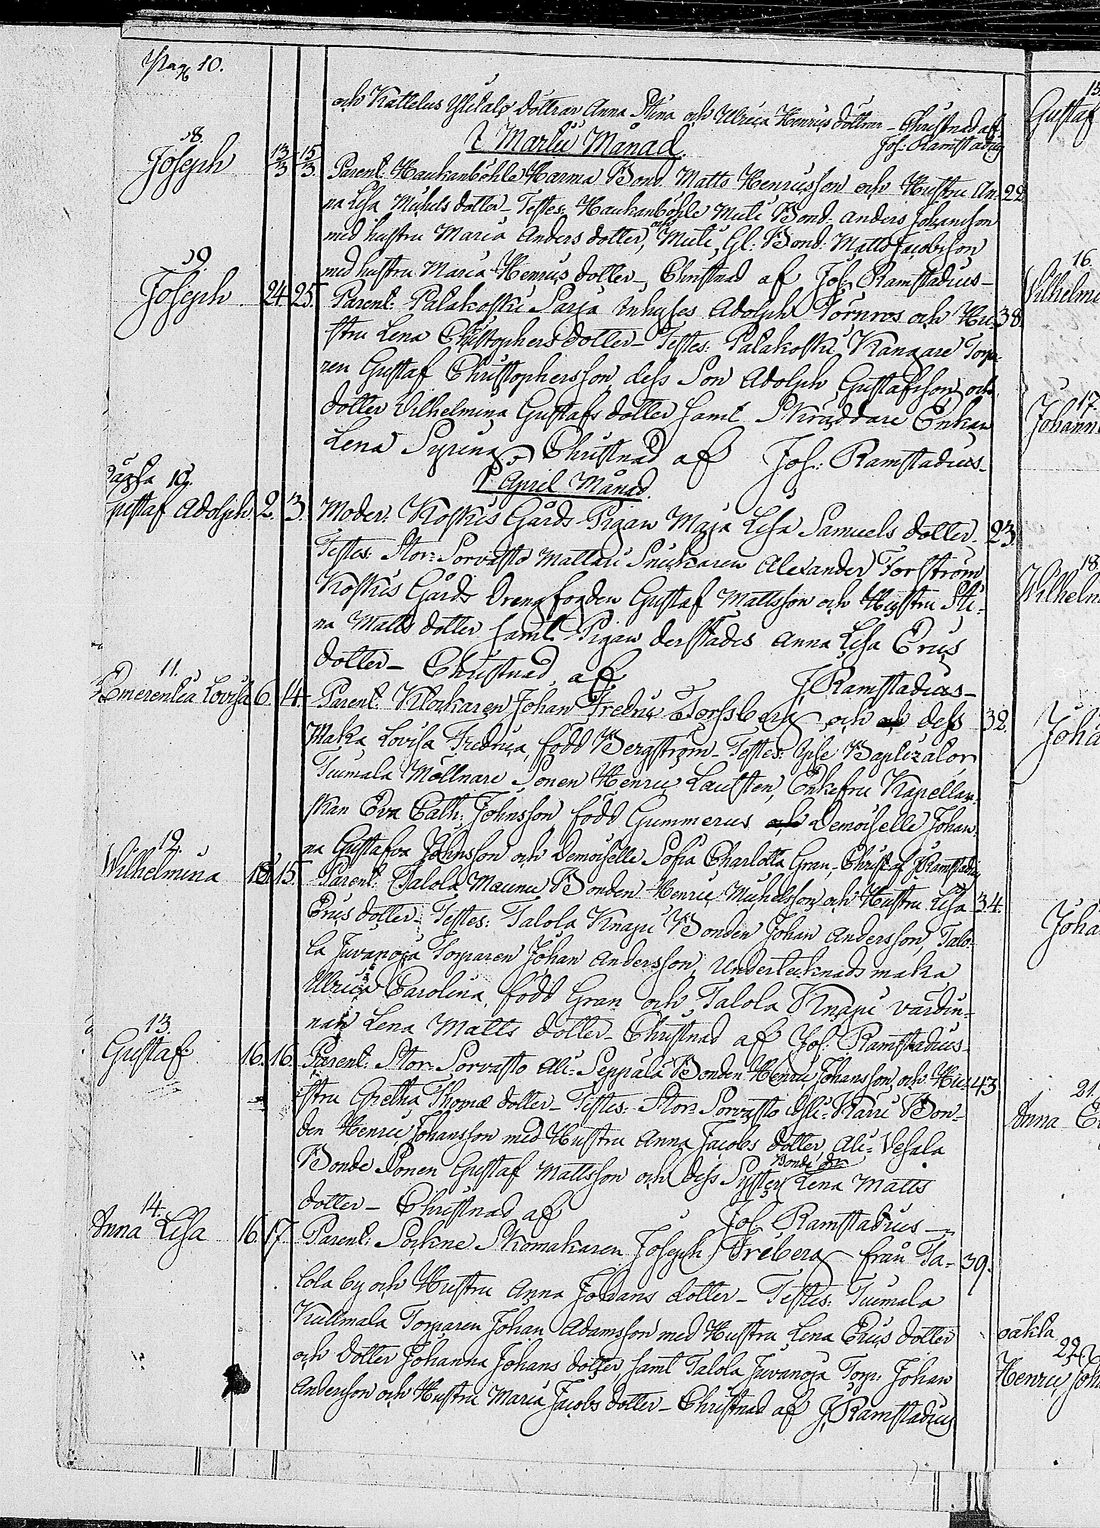 Pag 10.
och Kattelus Ylitalo dottrar Anna Stina och Ulrica Henrics dottrar - Christnad af
Joh: Ramstadius
I Martii Månad.
8.
Joseph 13/3 15/3 Parent: Haukanböhle Harma Bond. Matts Henricsson och Hustru An- 22
na Lisa Michels dotter - Testes: Haukanböhle Muti Bond. Anders Johansson
med hustru Maria Anders dotter, och Muti Gl. Bond. Matts Jacobsson
med hustru Maria Henrics dotter, Christnad af Joh: Ramstadius -
9.
Joseph 24. 25. Parent: Palakoski Sarja Inhyses Adolph Törnros och Hu- 38.
stru Lena Christophers dotter - Testes: Palakoski Kangare Torpa
ren Gustaf Christophersson, dess Son Adolph Gustafsson och
dotter Vilhelmina Gustafs dotter samt Skräddare Enkan
Lena Syring, Christnad af Joh: Ramstadius -
I April Månad.
oäkta 10.
Gustaf Adolph. 2. 3. Moder: Koskis Gårds Pigan Maja Lisa Samuels dotter - 23
Testes. Stor-Sorvasto Mattari Snickaren Alexander Forström
Koskis Gårds Drengfogden Gustaf Mattsson och Hustru Sti-
na Matts dotter samt Pigan derstädes Anna Lisa Erics
dotter - Christnad af J. Ramstadius -
11.
Emerentia Lovisa 6. 14. Parent. Klockaren Johan Fredric Forssberg och dess 32.
Maka Lovisa Fredrica, född Bergström - Testes: Ipse Baptizator
Tuimala Möllnare Sonen Henric Lausten, Enkefru Kapellan-
skan Eva Cath: Johnsson född Gummerus Demoiselle Johan-
na Gustafva Johnsson och Demoiselle Sofia Charlotta Gran, Christ. af J. Ramstadius
12.
Wilhelmina 13. 15. Parent: Talola Maunu Bonden Henric Michelsson och Hustru Lisa 34.
Erics dotter: Testes: Talola Knapi Bonden Johan Andersson, Talo-
la Juvanoja Torparen Johan Andersson, Undertecknads maka
Ulrica Carolina, född Gran och Talola Knapi värdin-
nan Lena Matts dotter - Christnad af Joh: Ramstadius -
13.
Gustaf 16. 16. Parent: Stor-Sorvasto Ali-Seppälä Bonden Henric Johansson, och Hu- 43.
stru Gretha Thomæ dotter - Testes: Stor-Sorvasto Yli-Karri Bon-
den Henric Johansson med Hustru Anna Jacobs dotter, Ali-Vesala
Bonde Sonen Gustaf Mattsson och Dess Syster Lena Matts
dotter - Christnad af Joh. Ramstadius -
14.
Anna Lisa 16. 17. Parent: Sockne Skomakaren Joseph Fréberg från Ta- 39.
lola by och Hustru Anna Johans dotter - Testes: Tuimala
Kullmala Torparen Johan Adamsson med Hustru Lena Erics dotter
och Dotter Johanna Johans dotter samt Talola Juvanoja Torp. Johan
Andersson och Hustru Maria Jacobs dotter - Christnad af J. Ramstadius
15.
Gustaf
16.
Wilhelmi
17.
Johann
18.
Wilhelm
Joha
Joha
21.
Anna
oäkta
22.
Henric Joh